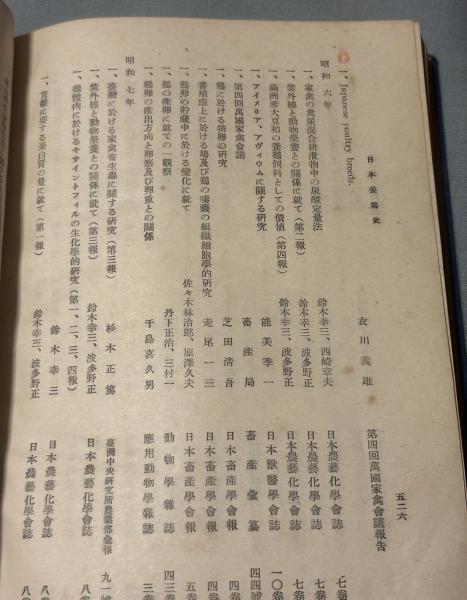 日本養鷄史
五二六
一、Japanese poultry breeds. 衣川義雄 第四回萬國家禽會議報告
昭和六年
一、家禽の糞尿混合排泄物中の尿酸定量法 鈴木幸三、西崎章夫 日本農藝化學會誌 七卷
一、紫外線と動物榮養との關係に就て（第二報） 鈴木幸三、波多野正 日本農藝化學會誌 七卷
一、滿洲產大豆粕の養鷄飼料としての價値（第四報） 鈴木幸三、波多野正 日本農藝化學會誌 七卷
一、アイメリア、アヴィウムに關する研究 能美季一 日本獸醫學會誌 一〇卷
一、第四回萬國家禽會議 畜產局 畜產彙纂 四四號
一、鷄に於ける排卵の研究 芝田淸吾 日本畜產學會報 四卷
一、蕃殖環上に於ける鳩及び鷄の嗉囊の組織細胞學的硏究 走尾一三 日本畜產學會報 四卷
一、鷄卵の貯藏中に於ける變化に就て 佐々木林治郎、原澤久夫 日本畜產學會報 五卷
一、鷄の產卵に就ての一觀察 丹下正治、三村一 動物學雜誌 四三卷
一、鷄卵の產出方向と卵形及び卵重との關係 千島喜久男 應用動物學雜誌 三卷
昭和七年
一、臺灣に於ける家禽寄生蟲に關する研究（第三報） 杉本正篤 臺灣中央硏究所農業部彙報 九一號
一、紫外線と動物榮養との關係に就て（第三報） 鈴木幸三、波多野正 日本農藝化學會誌 八卷
一、鷄體內に於けるキサイントフィルの生化學的研究（第一、二、三、四報） 鈴木幸三 日本農藝化學會誌 八卷
一、育雛に要する蛋白質の量に就て（第一報） 鈴木幸三、波多野正 日本農藝化學會誌 八卷